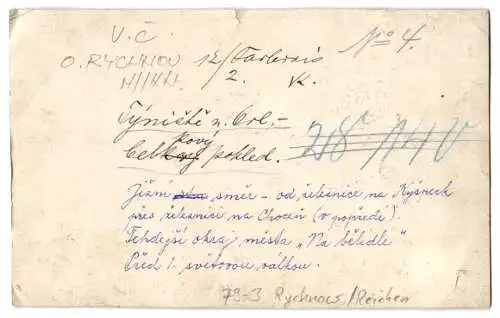 V.Č.
O. RYCHNOV
12/Farbensis
2. K.
No 4.
Týniště n. Orl. -
Celkový pohled.
Jižní směr - od železnice na Kyšperk
přes železnici na Choceň (v popředí).
Tehdejší okraj města „Na bělidle".
Před 1. světovou válkou.
79-3 Rychnow/Reichen